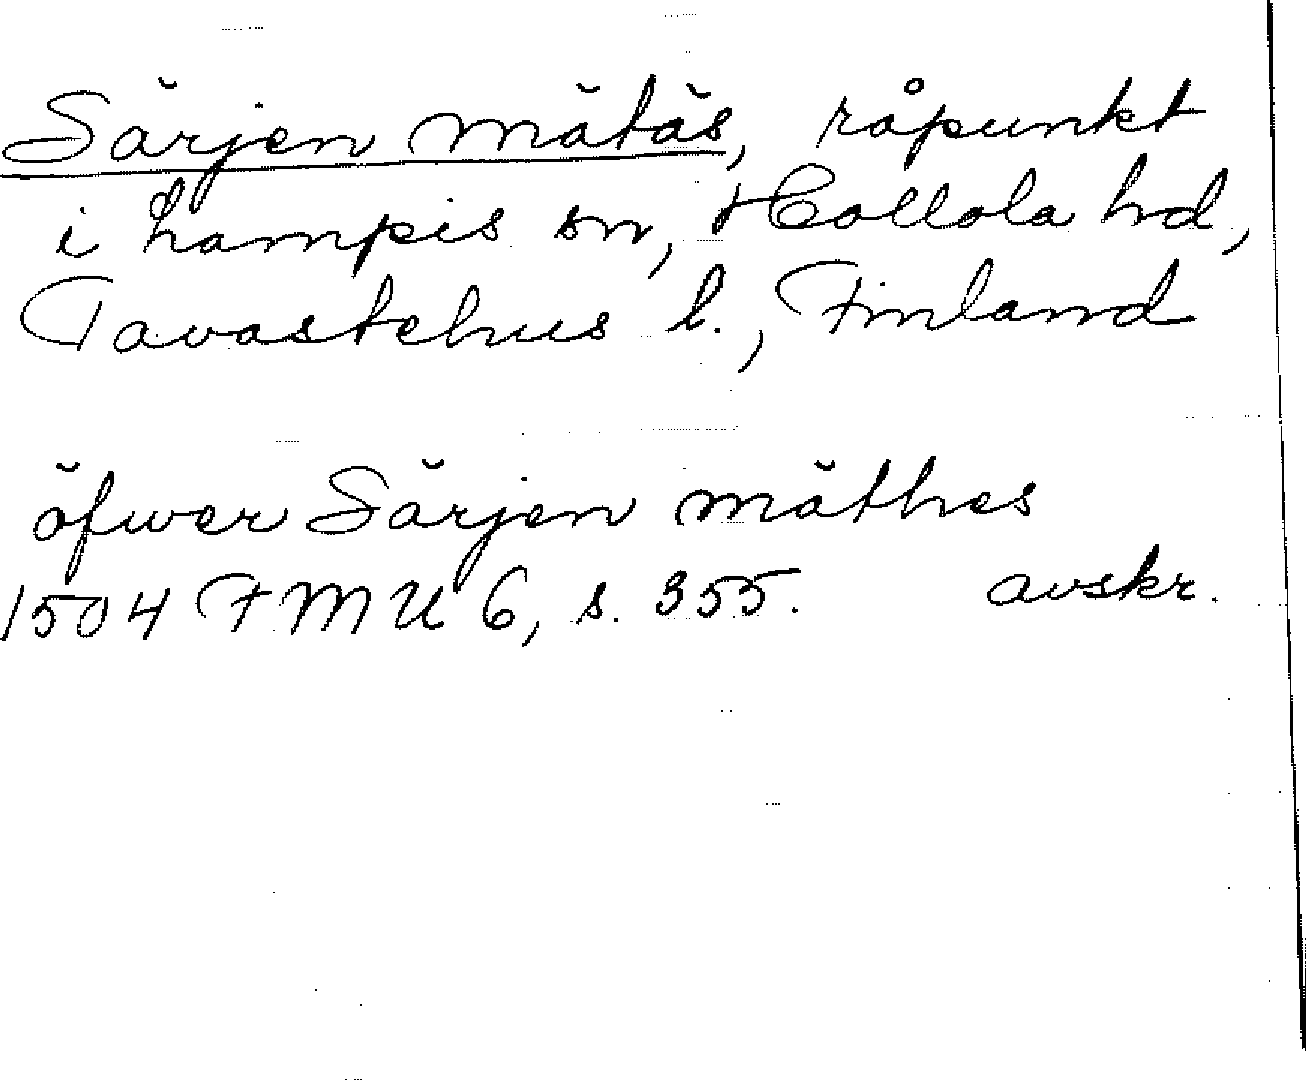 Särjen mätäs, råpunkt
i Lampis sn, Hollola hd,
Tavastehus l., Finland
öfwer Särjen mäthes
1504 FMU 6, s. 355. avskr.